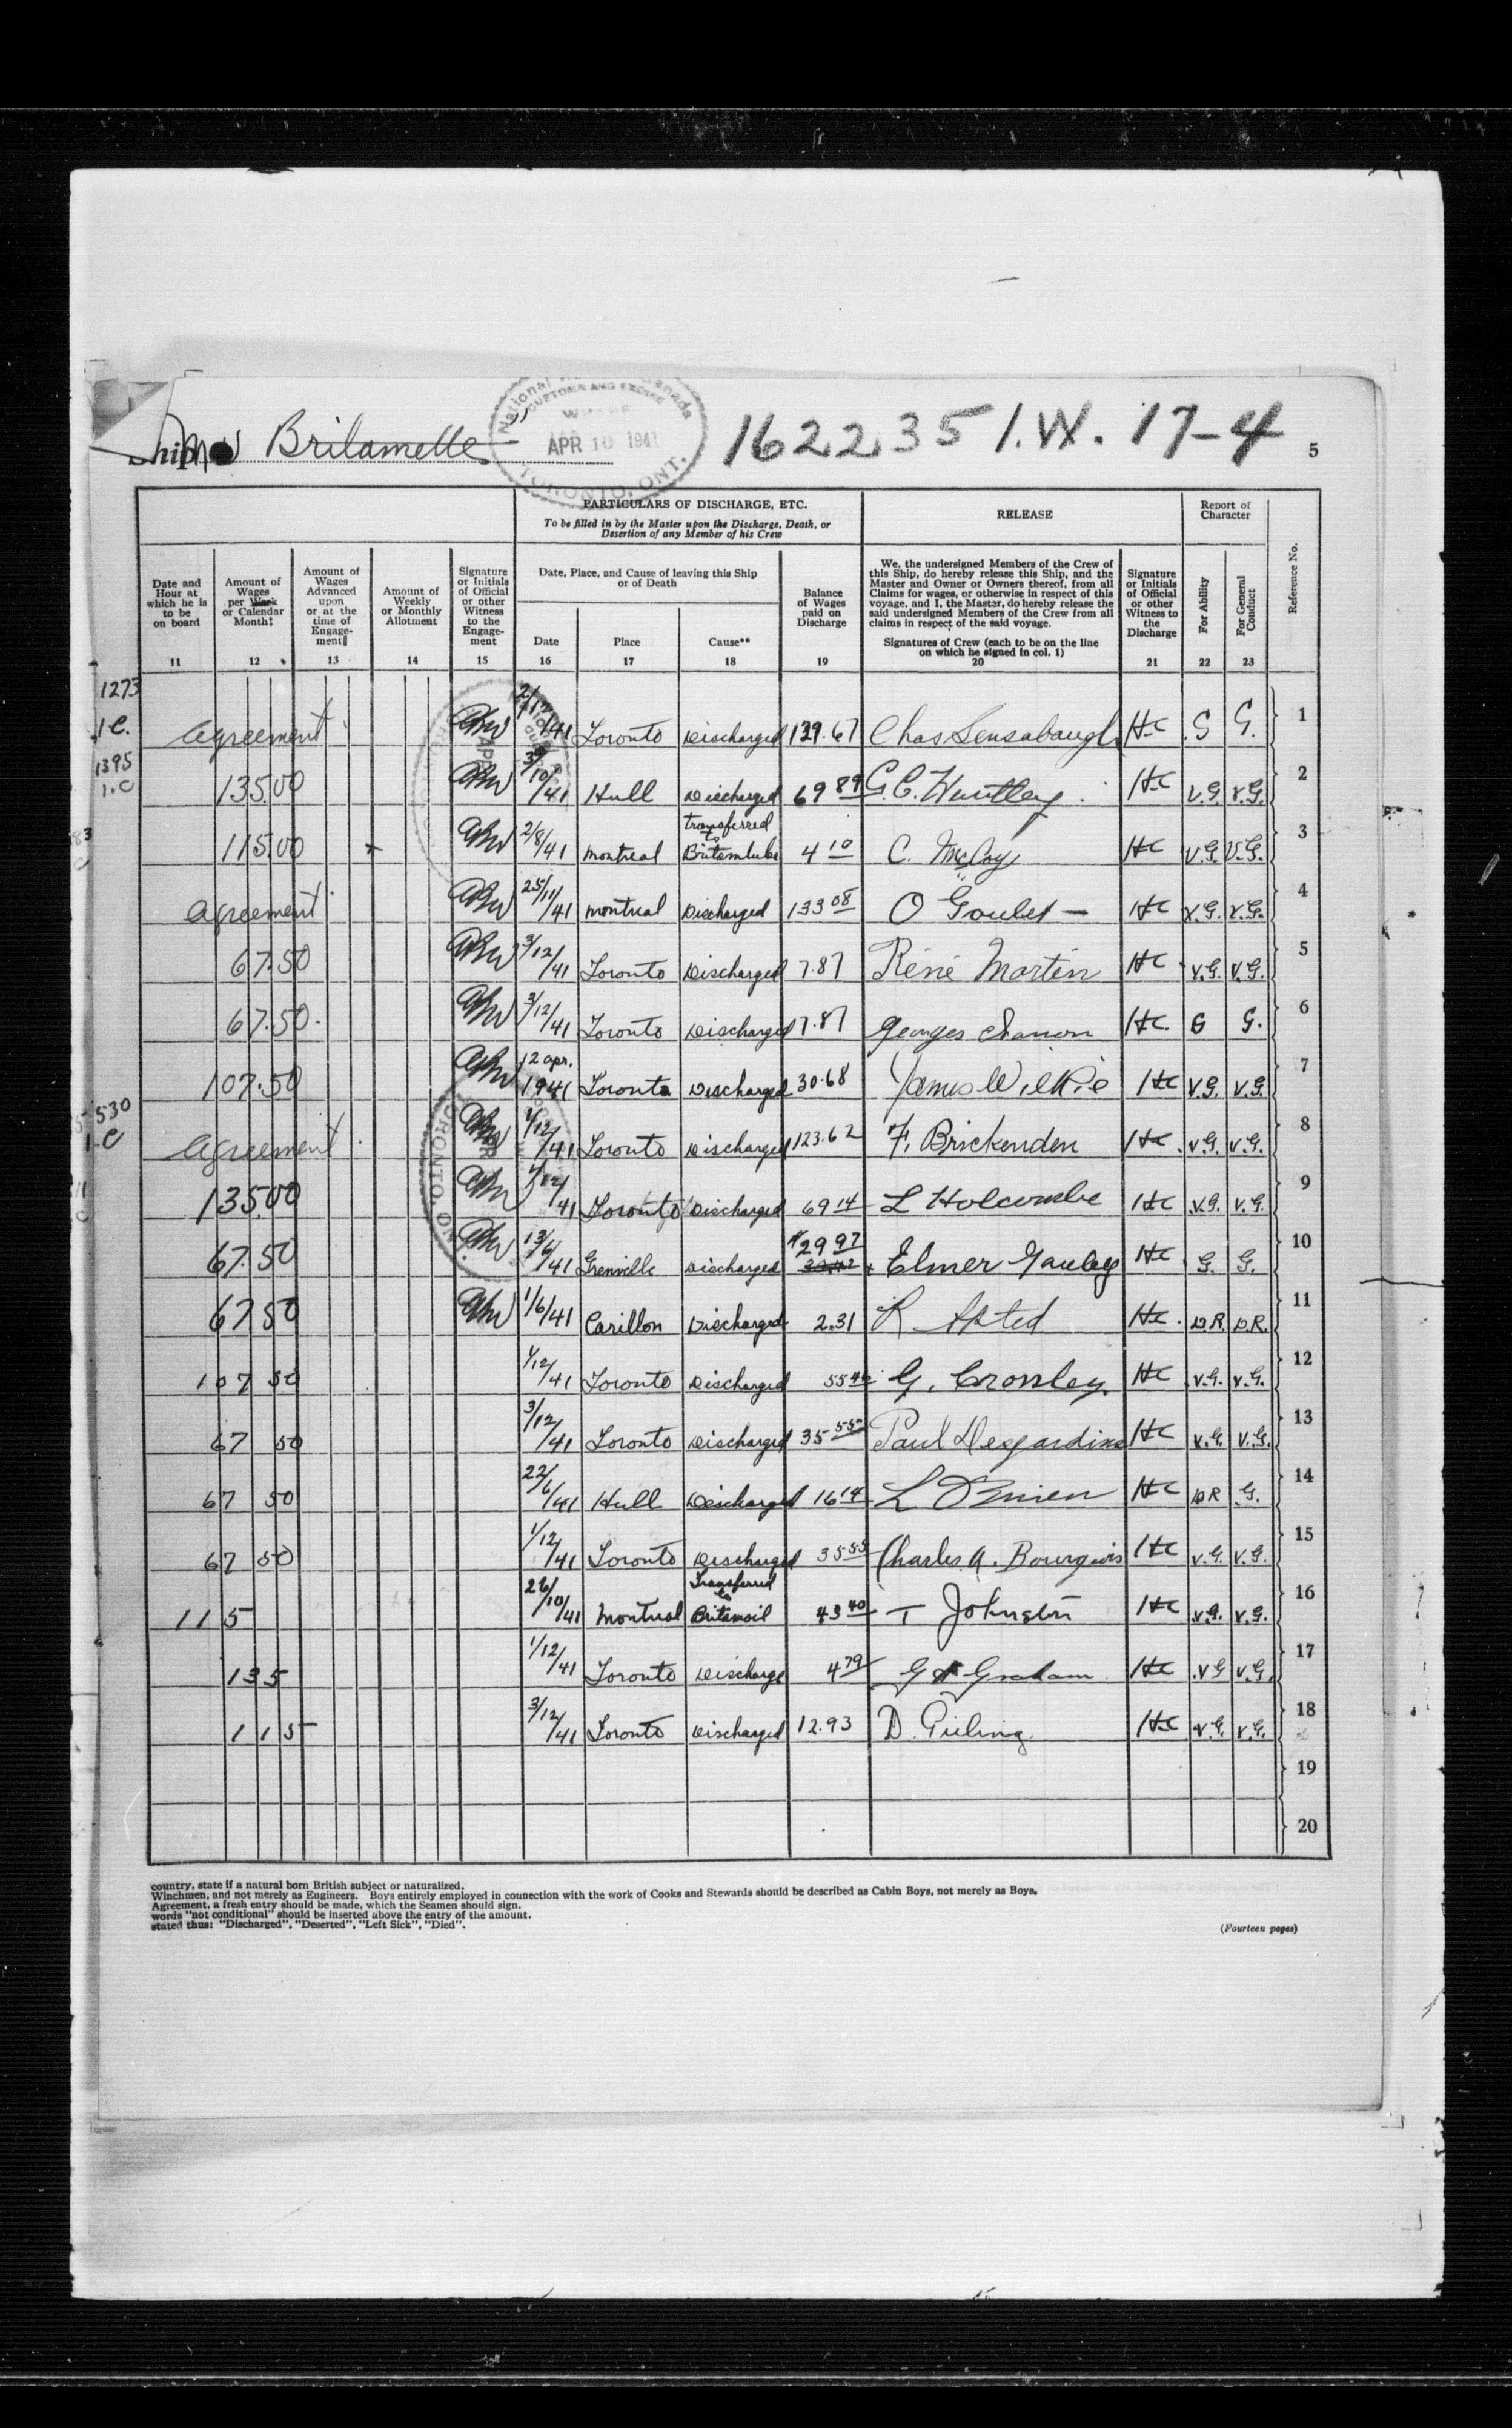 Ship Britamette
National Canada
CUSTOMS AND EXCISE
WHARF
APR 10 1941
TORONTO, ONT.
162235 I.W. 17-4
5
PARTICULARS OF DISCHARGE, ETC.
To be filled in by the Master upon the Discharge, Death, or
Desertion of any Member of his Crew
RELEASE
Report of
Character
Reference No.
Date and
Hour at
which he is
to be
on board
11
Amount of
Wages
per Week
or Calendar
Month‡
12
Amount of
Wages
Advanced
upon
or at the
time of
Engage-
ment‖
13
Amount of
Weekly
or Monthly
Allotment
14
Signature
or Initials
of Official
or other
Witness
to the
Engage-
ment
15
Date, Place, and Cause of leaving this Ship
or of Death
Date
16
Place
17
Cause**
18
Balance
of Wages
paid on
Discharge
19
We, the undersigned Members of the Crew of
this Ship, do hereby release this Ship, and the
Master and Owner or Owners thereof, from all
Claims for wages, or otherwise in respect of this
voyage, and I, the Master, do hereby release the
said undersigned Members of the Crew from all
claims in respect of the said voyage.
Signatures of Crew (each to be on the line
on which he signed in col. 1)
20
Signature
or Initials
of Official
or other
Witness to
the
Discharge
21
For Ability
22
For General
Conduct
23
1273
1.C.
Agreement 2/12/41 Toronto Discharged 139.67 Chas Sensabaugh HC G G. 1
1395
1.C
135.00 /10/41 Hull Discharged 69 89 G. C. Huntley HC V.G. V.G. 2
115.00 2/8/41 Montreal transferred to Britamlube 4 10 C. McCoy HC V.G. V.G. 3
Agreement 25/11/41 Montreal Discharged 133 08 O Goulet — HC V.G. V.G. 4
67.50 3/12/41 Toronto Discharged 7.87 René Martin HC V.G. V.G. 5
67.50 3/12/41 Toronto Discharged 7.87 Georges HC G G. 6
107.50 12 apr. 1941 Toronto Discharged 30.68 James Wilkie HC V.G. V.G. 7
530
1.C
Agreement 1/12/41 Toronto Discharged 123.62 F. Brickenden HC V.G. V.G. 8
135.00 1/12/41 Toronto Discharged 69 14 L Holcombe HC V.G. V.G. 9
67.50 13/6/41 Grenville Discharged 29 97 Elmer Gauley HC G. G. 10
67.50 1/6/41 Carillon Discharged 2.31 R HC D.R. D.R. 11
107 50 1/12/41 Toronto Discharged 55 G. Crossley HC V.G. V.G. 12
67 50 3/12/41 Toronto Discharged 35 55 Paul Desjardins HC V.G. V.G. 13
67 50 22/6/41 Hull Discharged 16 14 L O'Brien HC D R G. 14
67 50 1/12/41 Toronto Discharged 35 55 Charles A. Bourgeois HC V.G. V.G. 15
115 26/10/41 Montreal Transferred to Britamoil 43 40 T Johnston HC V.G. V.G. 16
135 1/12/41 Toronto Discharge 4 79 G Graham HC V G V.G. 17
115 3/12/41 Toronto Discharged 12.93 D. HC V.G. V.G. 18
19
20
country, state if a natural born British subject or naturalized.
Winchmen, and not merely as Engineers. Boys entirely employed in connection with the work of Cooks and Stewards should be described as Cabin Boys, not merely as Boys.
Agreement, a fresh entry should be made, which the Seamen should sign.
words "not conditional" should be inserted above the entry of the amount.
stated thus: "Discharged", "Deserted", "Left Sick", "Died".
(Fourteen pages)